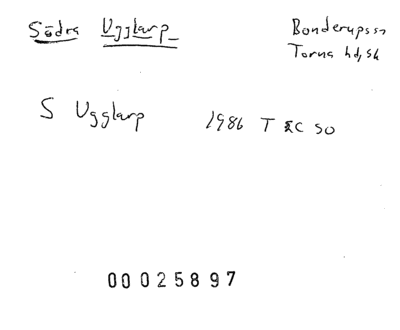 Södra Ugglarp
Bonderups sn
Torna hd, Sk
S Ugglarp 1986 T EC SO
00025897